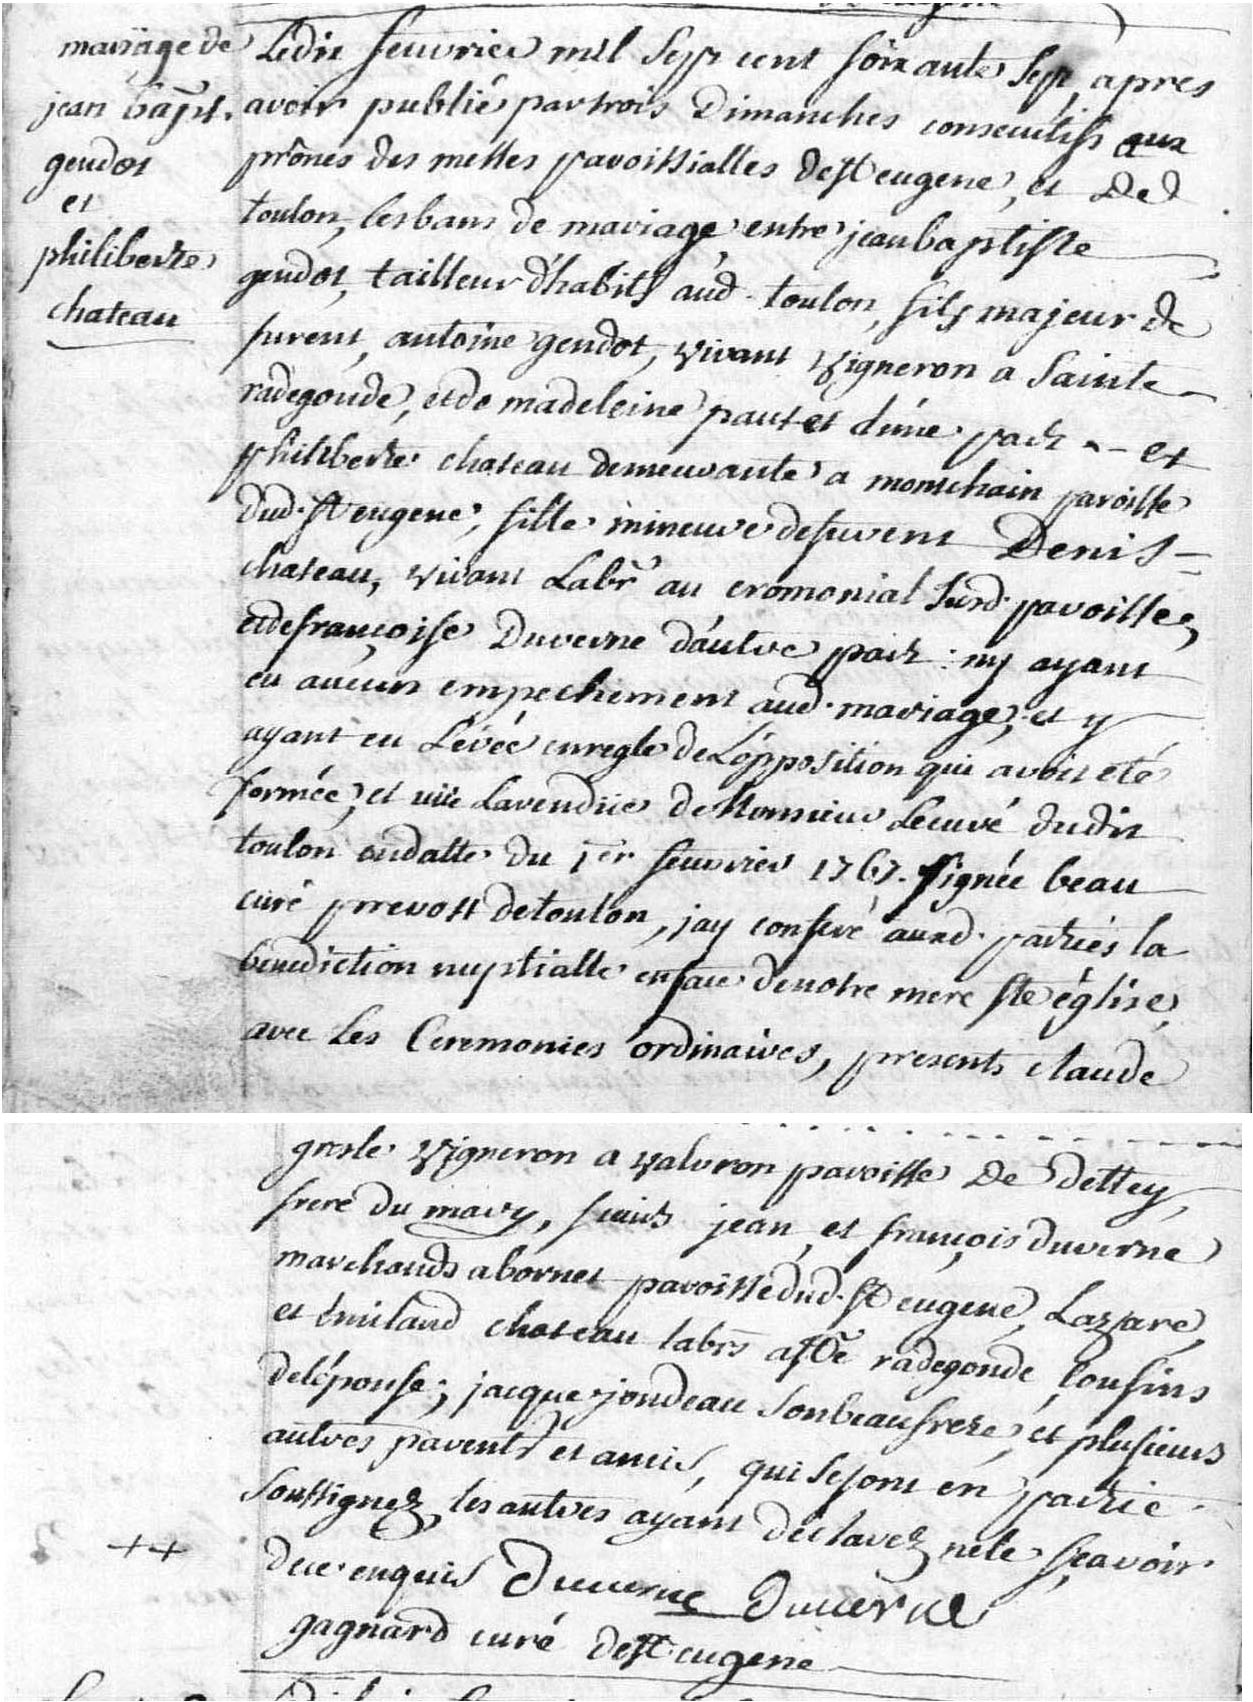 mariage de
jean bapt.
gendot
et
philiberte
chateau
Le dix feuvrier mil sept cent soixante sept, apres
avoir publié par trois Dimanches consecutifs aux
prônes des messes paroissialles de St eugene, et De
toulon, les bans de mariage entre jean baptiste
gendot, tailleur d'habits aud. toulon, fils majeur de
furent, antoine gendot, vivant vigneron a Sainte
radegonde, et de madeleine pautet d'une part -- et
philiberte chateau demeurante a montchain paroisse
dud. St eugene, fille mineure de furent Denis
chateau, vivant Labr au cromonial surd. paroisse,
et de françoise Duverne d'autre part : ny ayant
eu aucun empechement aud. mariage, et y
ayant eu Levée en regle de L'opposition qui avoit eté
formée, et vüe La rendüe de Monsieur Le curé dudit
toulon en datte du 1er feuvrier 1767. signée beau
curé prevost de toulon, jay conferé auxd. parties la
benediction nuptialle en face de notre mere Ste église,
avec les Ceremonies ordinaires, presents claude
grosle vigneron a valvron paroisse De dettey,
frere du mary, jean, et françois duverne
marchands a bornet paroisse dud. St eugene, Lazare,
et Emiland chateau labrs a Ste radegonde, Cousins
de l'épouse; jacque jondeau son beaufrere, et plusieurs
autres parents et amis, qui se sont en partie
soussignez, les autres ayant declarez ne le sçavoir
++
de ce enquis Duverne Duverne
gagnard curé de St eugene